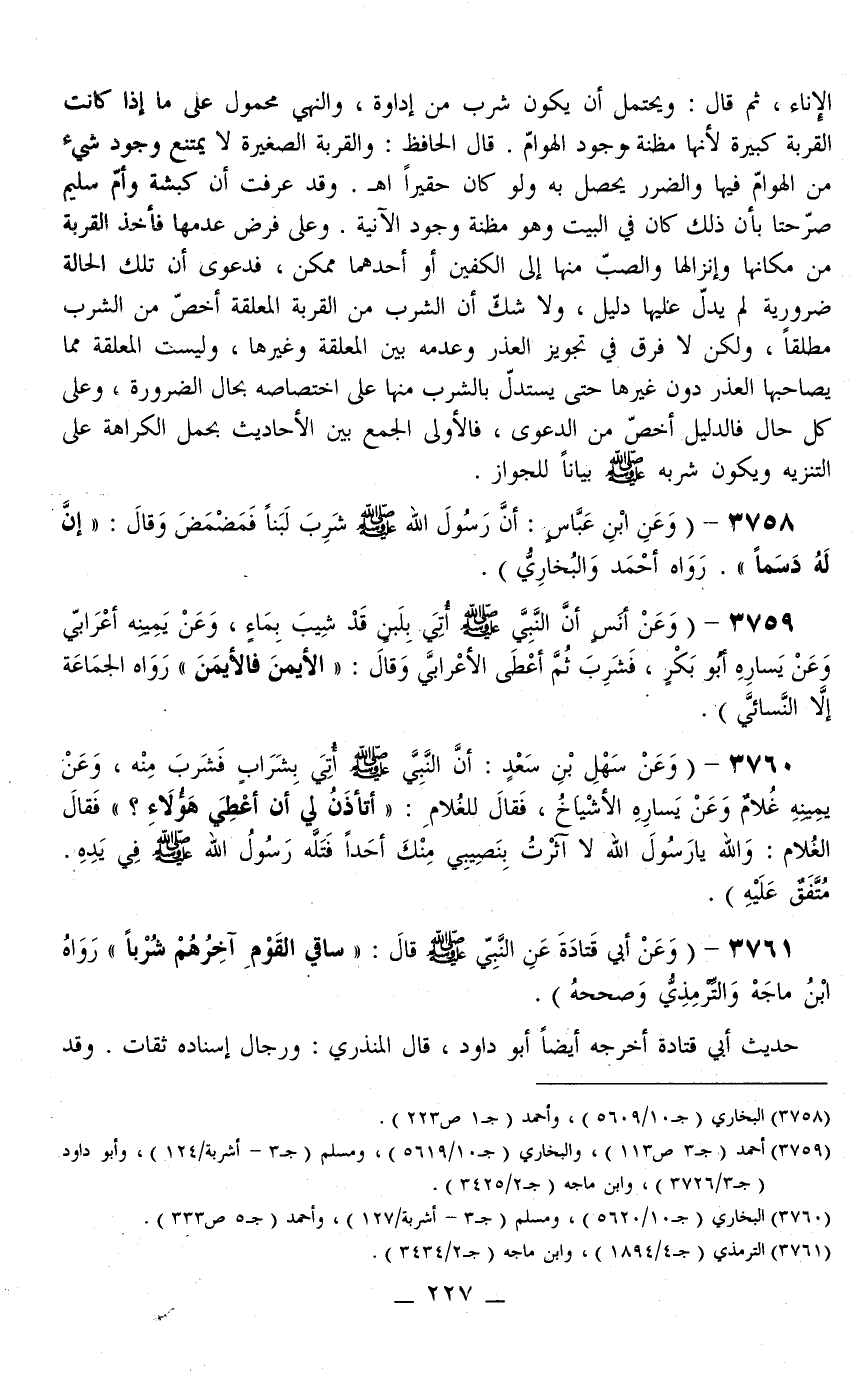 الإناء ، ثم قال : ويحتمل أن يكون شرب من إداوة ، والنهي محمول على ما إذا كانت
القربة كبيرة لأنها مظنة وجود الهوامّ . قال الحافظ : والقربة الصغيرة لا يمتنع وجود شيء
من الهوامّ فيها والضرر يحصل به ولو كان حقيراً اهـ . وقد عرفت أن كبشة وأمّ سليم
صرّحتا بأن ذلك كان في البيت وهو مظنة وجود الآنية . وعلى فرض عدمها فأخذ القربة
من مكانها وإنزالها والصبّ منها إلى الكفين أو أحدهما ممكن ، فدعوى أن تلك الحالة
ضرورية لم يدلّ عليها دليل ، ولا شكّ أن الشرب من القربة المعلقة أخصّ من الشرب
مطلقاً ، ولكن لا فرق في تجويز العذر وعدمه بين المعلقة وغيرها ، وليست المعلقة مما
يصاحبها العذر دون غيرها حتى يستدلّ بالشرب منها على اختصاصه بحال الضرورة ، وعلى
كل حال فالدليل أخصّ من الدعوى ، فالأولى الجمع بين الأحاديث بحمل الكراهة على
التنزيه ويكون شربه ﷺ بياناً للجواز .
٣٧٥٨ – ( وَعَنِ ابْنِ عَبَّاسٍ : أنَّ رَسُولَ الله ﷺ شَرِبَ لَبَناً فَمَضْمَضَ وَقالَ : « إنَّ
لَهُ دَسَماً » . رَوَاه أحْمَد وَالبُخارِيُّ ) .
٣٧٥٩ – ( وَعَنْ أنَسٍ أنَّ النَّبيَّ ﷺ أُتِيَ بِلَبنٍ قَدْ شِيبَ بِمَاءٍ ، وَعَنْ يَمِينِه أعْرَابيّ
وَعَنْ يَسارِهِ أَبُو بَكْرٍ ، فَشَرِبَ ثُمَّ أعْطَى الأعْرابيَّ وَقالَ : « الأيمنَ فالأيمَنَ » رَوَاه الجمَاعَة
إلَّا النَّسائيَّ ) .
٣٧٦٠ – ( وَعَنْ سَهْلِ بْنِ سَعْدٍ : أنَّ النَّبيَّ ﷺ أُتِيَ بِشَرَابٍ فَشَربَ مِنْه ، وَعَنْ
يمِينِهِ غُلامٌ وَعَنْ يَسارِهِ الأشْيَاخُ ، فَقالَ للغُلامِ : « أتأذَنُ لي أن أعْطِيَ هَؤُلَاءِ ؟ » فَقالَ
الغُلام : وَالله يارَسُولَ الله لا آثَرْتُ بِنَصِيبِي مِنْكَ أحَداً فَتَلَّه رَسُولُ الله ﷺ فِي يَدِهِ .
مُتَّفَقٌ عَلَيْهِ ) .
٣٧٦١ – ( وَعَنْ أبي قَتادَةَ عَنِ النَّبيّ ﷺ قالَ : « ساقي القَوْمِ آخِرُهُمْ شُرْباً » رَوَاهُ
ابْنُ ماجَهْ وَالتِّرْمِذِيُّ وَصححهُ ) .
حديث أبي قتادة أخرجه أيضاً أبو داود ، قال المنذري : ورجال إسناده ثقات . وقد
(٣٧٥٨) البخاري ( جـ٥٦٠٩/١٠ ) ، وأحمد ( جـ١ ص٢٢٣ ) .
(٣٧٥٩) أحمد ( جـ٣ ص١١٣ ) ، والبخاري ( جـ٥٦١٩/١٠ ) ، ومسلم ( جـ٣ – أشربة/١٢٤ ) ، وأبو داود
( جـ٣٧٢٦/٣ ) ، وابن ماجه ( جـ٣٤٢٥/٢ ) .
(٣٧٦٠) البخاري ( جـ٥٦٢٠/١٠ ) ، ومسلم ( جـ٣ – أشربة/١٢٧ ) ، وأحمد ( جـ٥ ص٣٣٣ ) .
(٣٧٦١) الترمذي ( جـ١٨٩٤/٤ ) ، وابن ماجه ( جـ٣٤٣٤/٢ ) .
– ٢٢٧ –